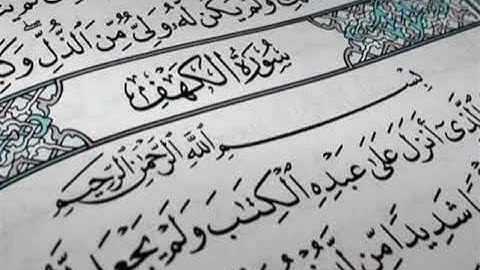 وَلَمْ يَكُن لَّهُۥ وَلِىٌّ مِّنَ ٱلذُّلِّ ۖ وَكَ
سُورَةُ الكَهْفِ
بِسْمِ ٱللَّهِ ٱلرَّحْمَٰنِ ٱلرَّحِيمِ
ٱلَّذِىٓ أَنزَلَ عَلَىٰ عَبْدِهِ ٱلْكِتَٰبَ وَلَمْ يَجْعَل
شَدِيدًا مِّن